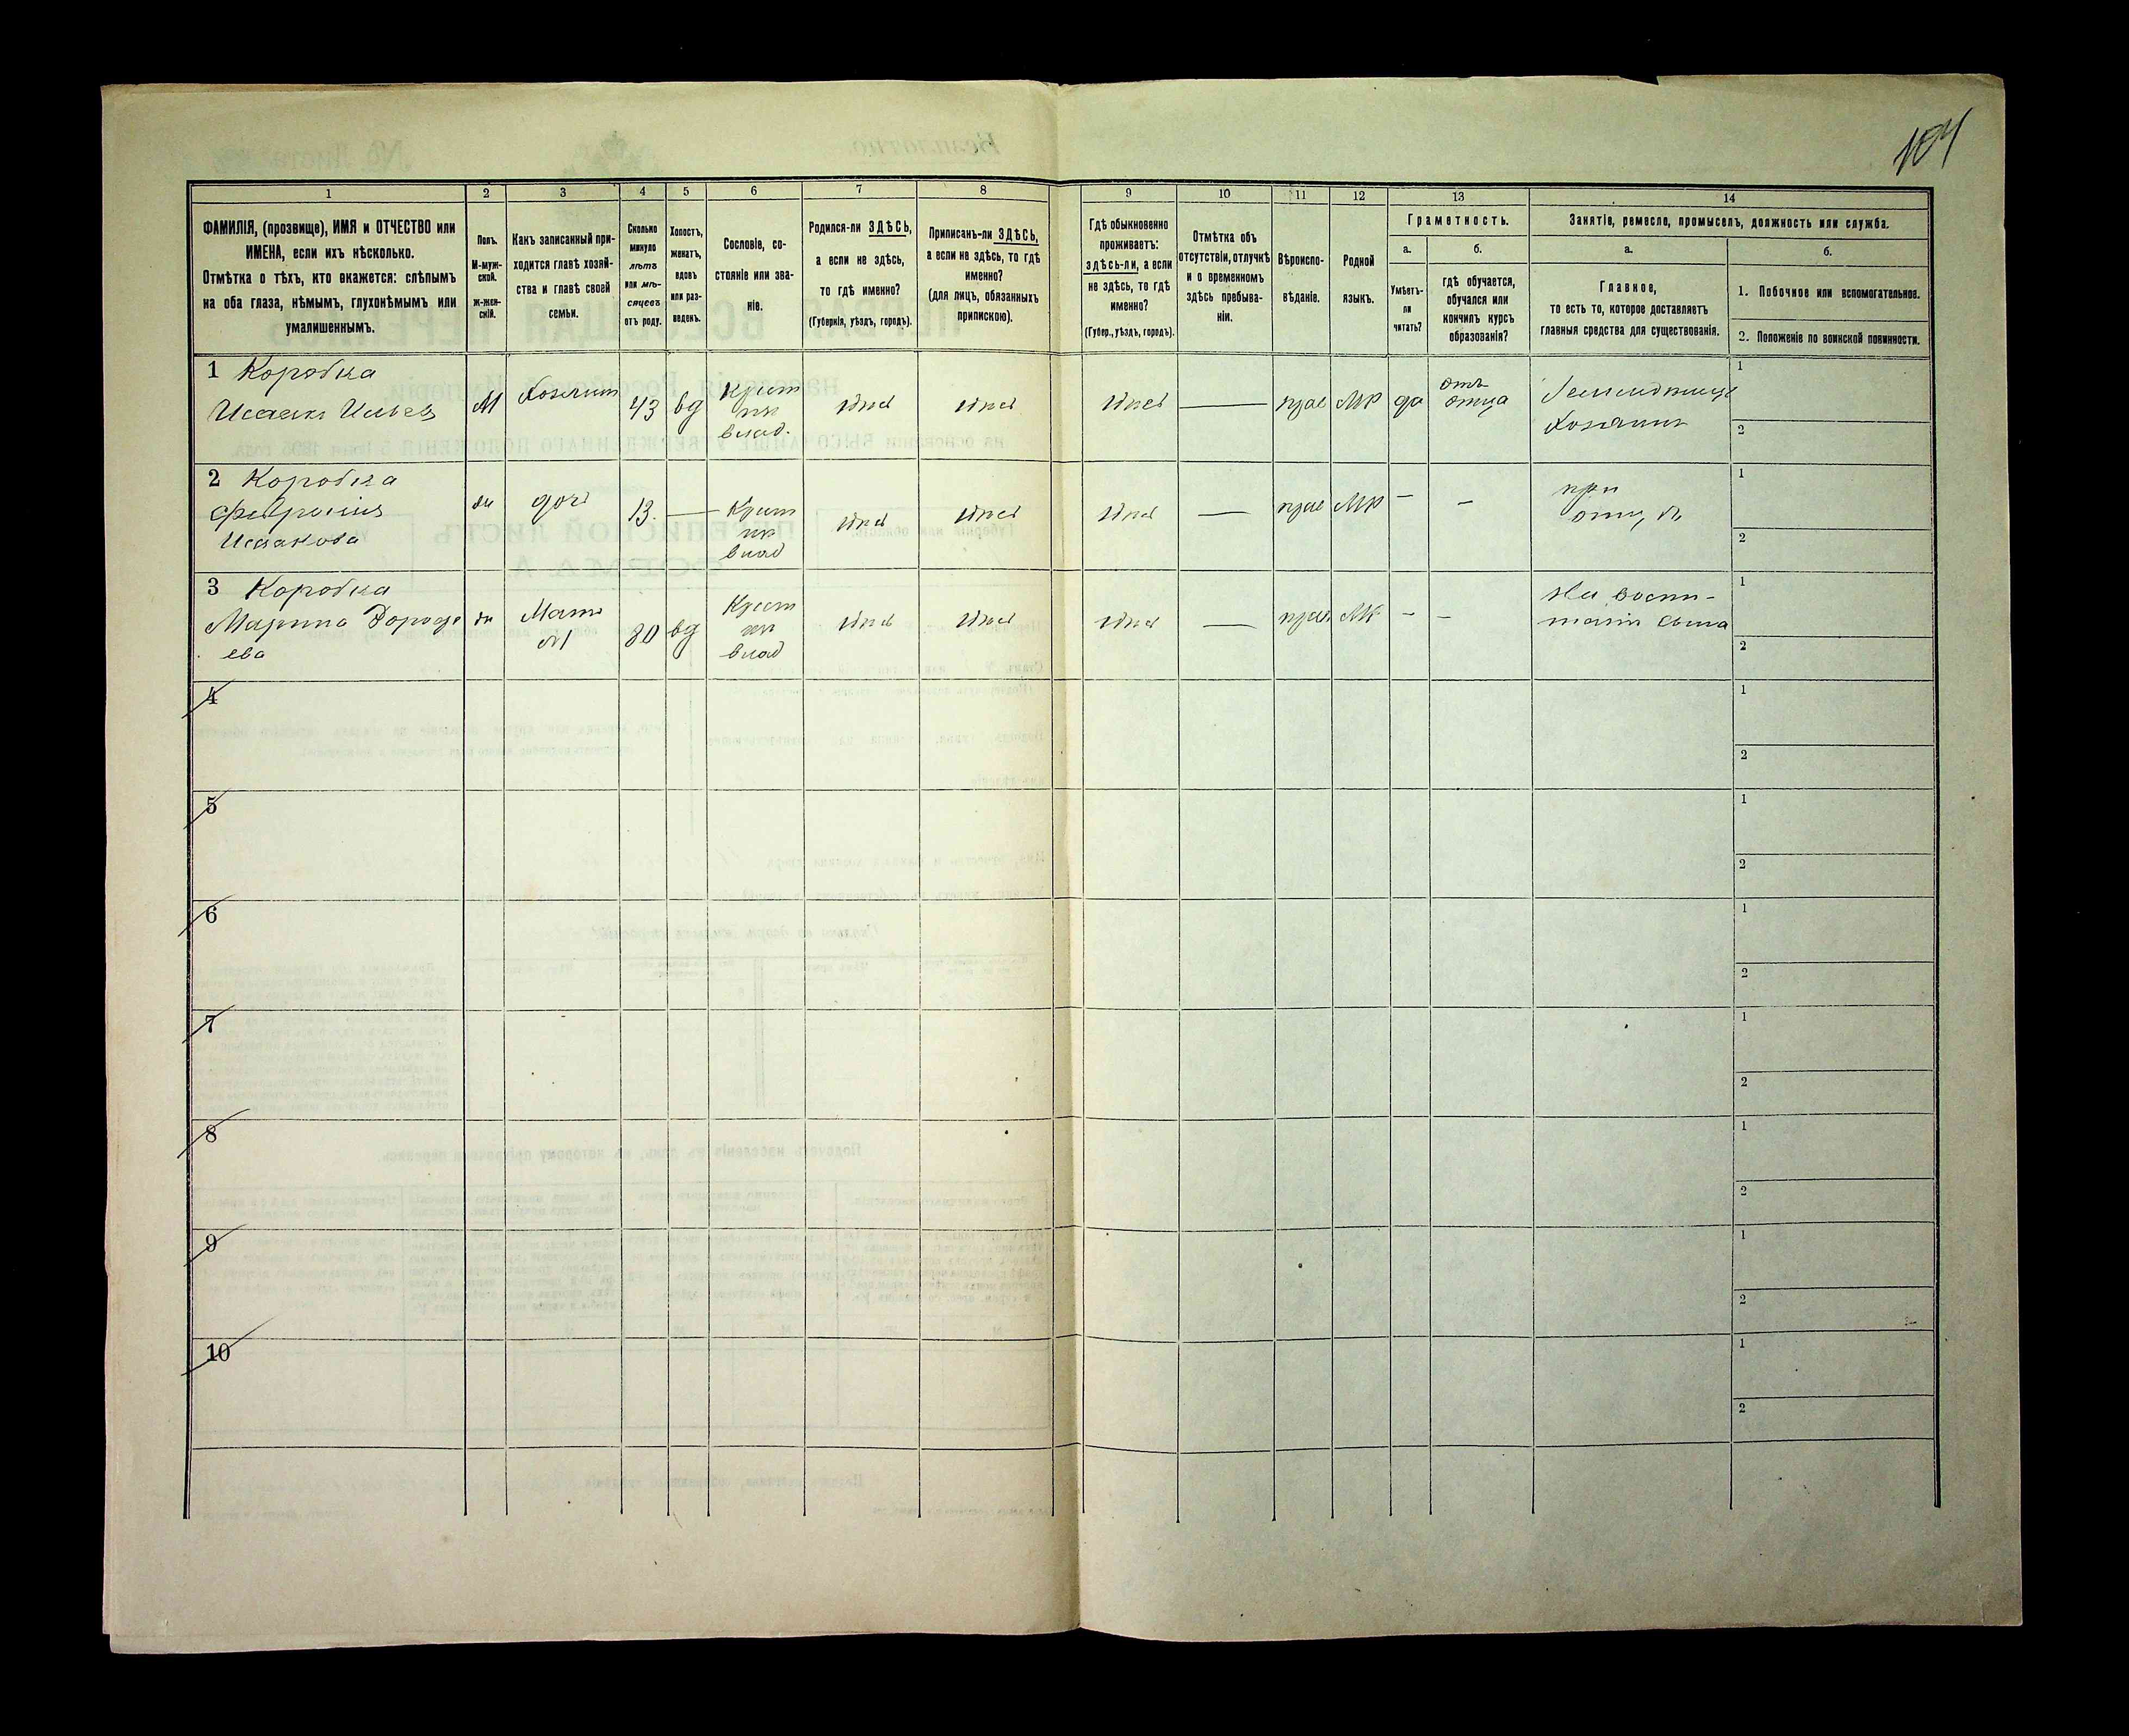 104
1
2
3
4
5
6
7
8
9
10
11
12
13
14
ФАМИЛІЯ, (прозвище), ИМЯ и ОТЧЕСТВО или
ИМЕНА, если ихъ нѣсколько.
Отмѣтка о тѣхъ, кто окажется: слѣпымъ
на оба глаза, нѣмымъ, глухонѣмымъ или
умалишеннымъ.
Полъ.
М-муж-
ской.
ж-жен-
скій.
Какъ записанный при-
ходится главѣ хозяй-
ства и главѣ своей
семьи.
Сколько
минуло
лѣтъ
или мѣ-
сяцевъ
отъ роду.
Холостъ,
женатъ,
вдовъ
или раз-
веденъ.
Сословіе, со-
стояніе или зва-
ніе.
Родился-ли ЗДѢСЬ,
а если не здѣсь,
то гдѣ именно?
(Губернія, уѣздъ, городъ).
Приписанъ-ли ЗДѢСЬ,
а если не здѣсь, то гдѣ
именно?
(для лицъ, обязанныхъ
припискою).
Гдѣ обыкновенно
проживаетъ:
здѣсь-ли, а если
не здѣсь, то гдѣ
именно?
(Губер., уѣздъ, городъ).
Отмѣтка объ
отсутствіи, отлучкѣ
и о временномъ
здѣсь пребыва-
ніи.
Вѣроиспо-
вѣданіе.
Родной
языкъ.
Грамотность.
а.
Умѣетъ-
ли
читать?
б.
гдѣ обучается,
обучался или
кончилъ курсъ
образованія?
Занятіе, ремесло, промыселъ, должность или служба.
а.
Главное,
то есть то, которое доставляетъ
главныя средства для существованія.
б.
1. Побочное или вспомогательное.
2. Положеніе по воинской повинности.
1 Коробка
Исаакъ Ильевъ
М
Хозяинъ
43
вд
Крест
вла­д.
здѣсь
здѣсь
здѣсь
прав
МР
да
отъ
отца
Хозяинъ
1
2
2 Коробка
Исаакова
дочь
13.
Крест
влад
здѣсь
здѣсь
здѣсь
прав
МР
при
отцѣ
1
2
3 Коробка
Марина Дорофе
ева
Мать
М
80
вд
Крест
влад
здѣсь
здѣсь
здѣсь
прав
МР
На воспи-
таніи сына
1
2
4
1
2
5
1
2
6
1
2
7
1
2
8
1
2
9
1
2
10
1
2